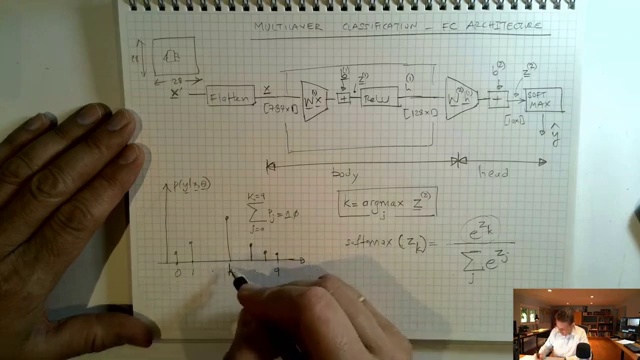 MULTILAYER CLASSIFICATION - FC ARCHITECTURE
28
28
X' Flatten x [787x1] W⁽¹⁾x b⁽¹⁾ + z⁽¹⁾ ReLU h⁽¹⁾ [128x1] W⁽²⁾h b⁽²⁾ + z⁽²⁾ [10x1] SOFT MAX
ŷ
body head
p(y|x,θ)
K=9 ∑ j=0 ŷj = 1.0
K = argmax j z⁽²⁾
softmax (z_k) = e^{z_k} / ∑_j e^{z_j}
0 1 k 9